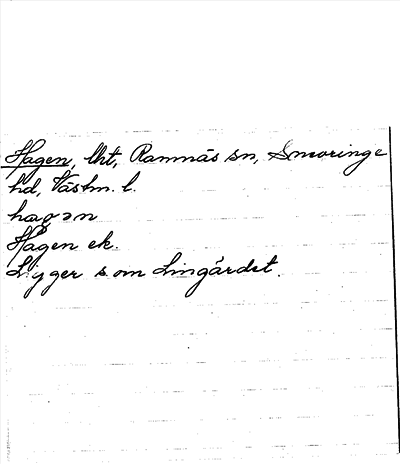 Hagen, lht, Ramnäs sn, Snevringe
hd, Västm. l.
hagən
Hagen ek.
Ligger som Lingärdet.